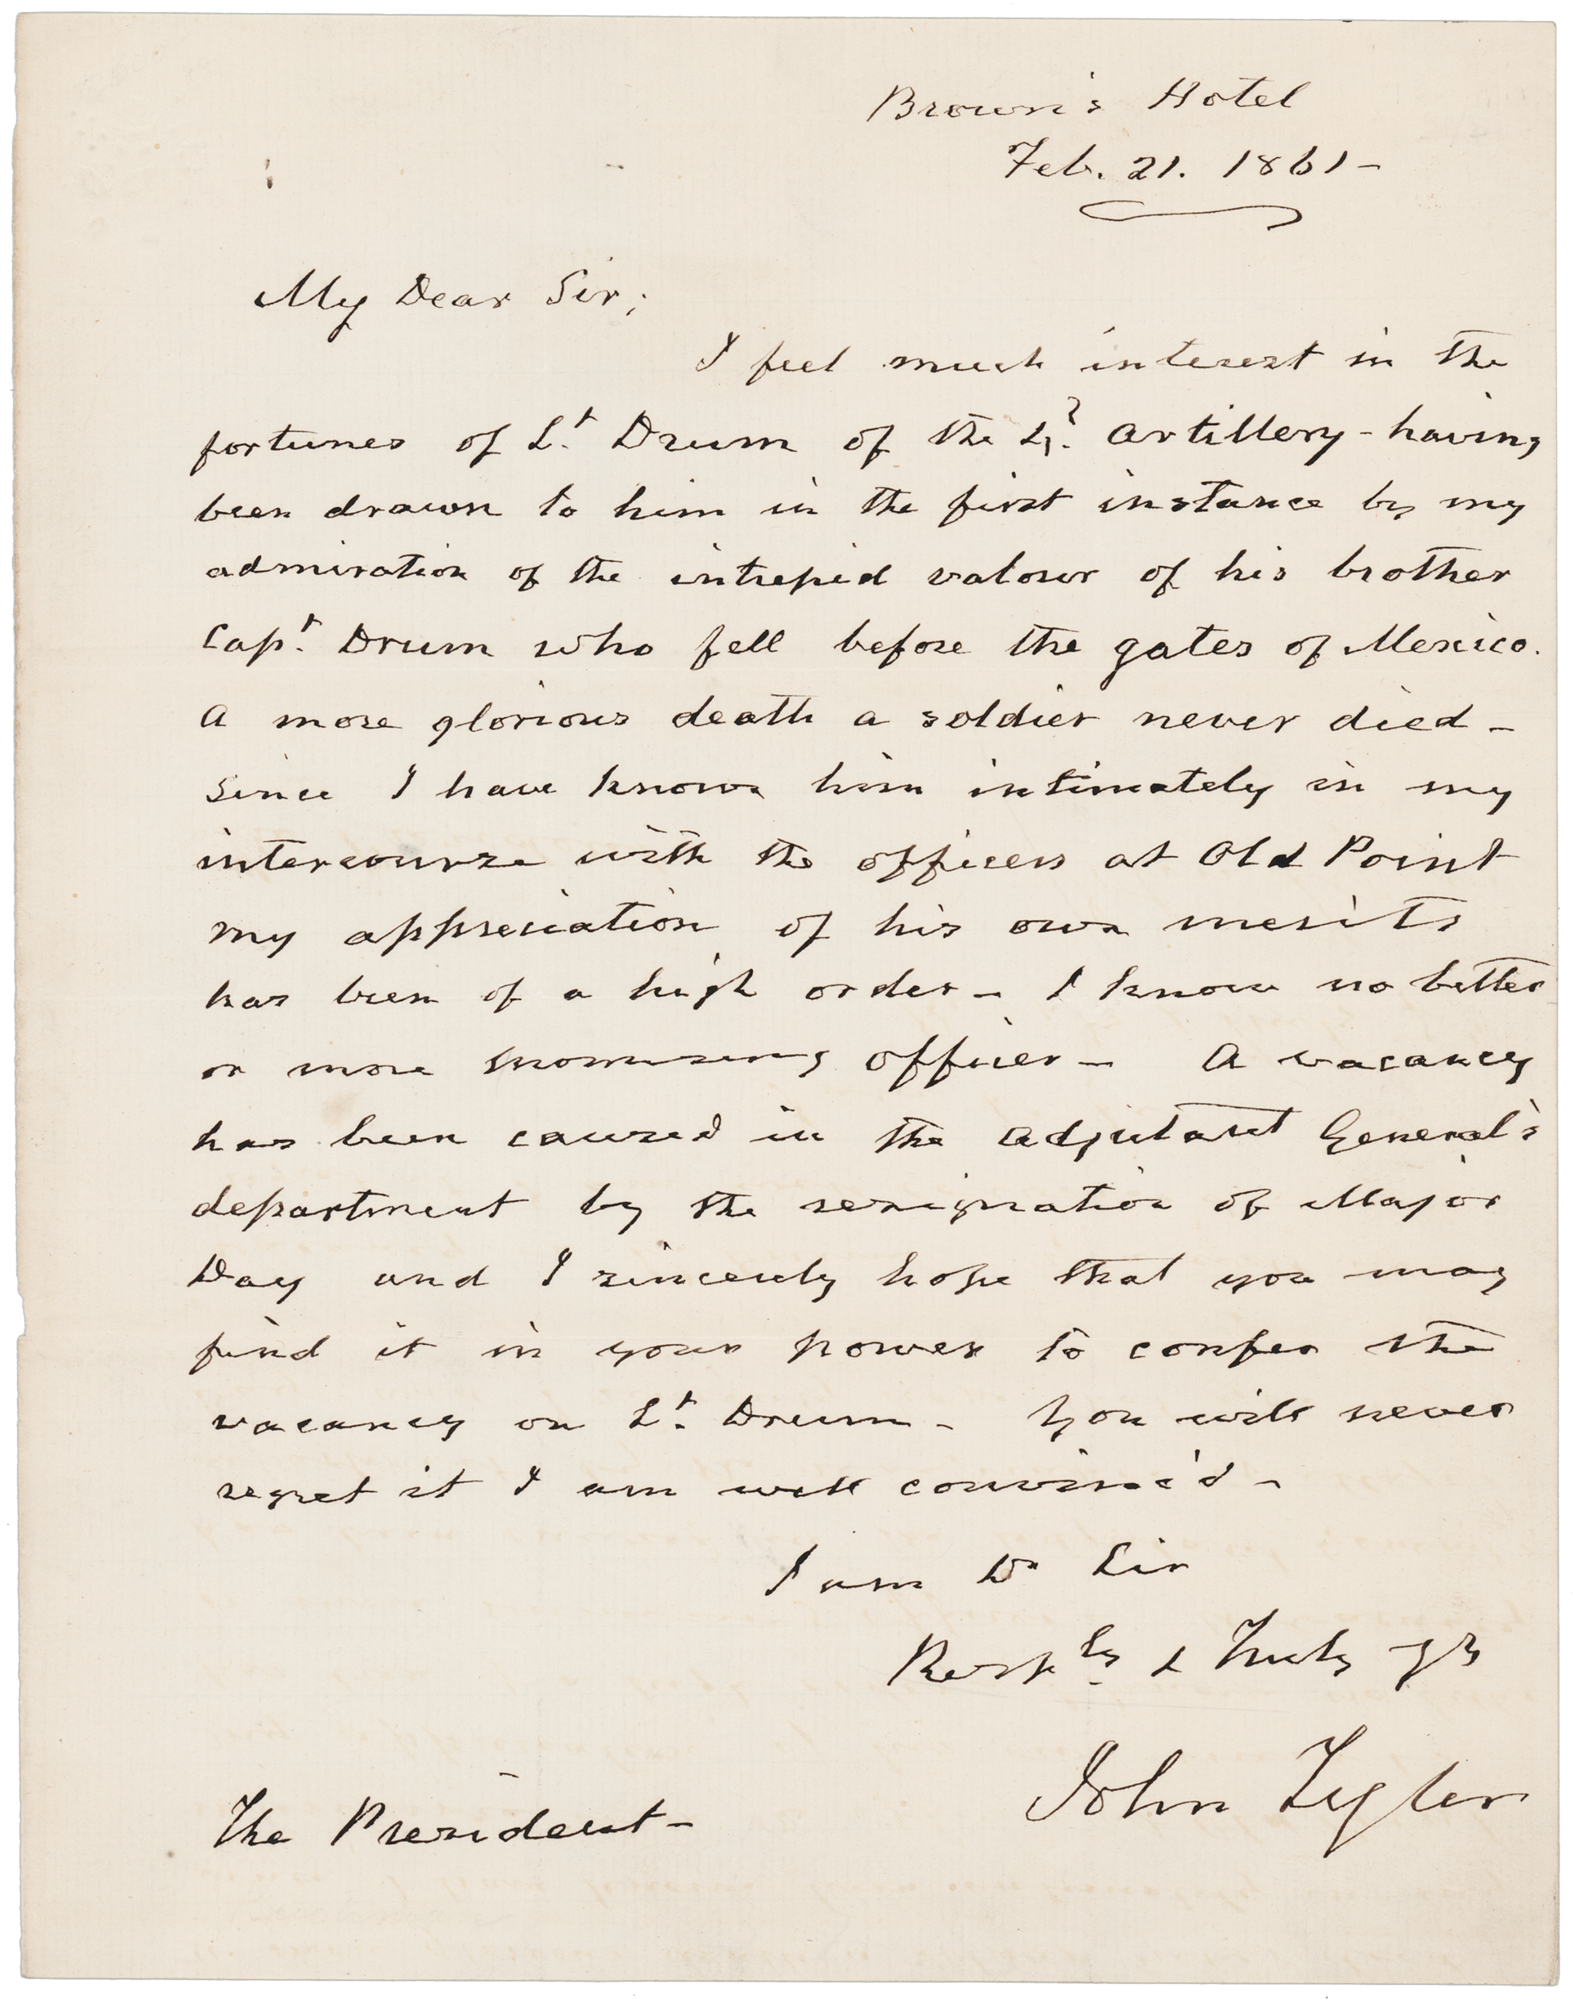 Brown's Hotel
Feb. 21. 1861-
My Dear Sir;
I feel much interest in the
fortunes of Lt. Drum of the 4? Artillery - having
been drawn to him in the first instance by my
admiration of the intrepid valour of his brother
Capt. Drum who fell before the gates of Mexico.
A more glorious death a soldier never died -
since I have known him intimately in my
intercourse with the officers at Old Point
my appreciation of his own merits
has been of a high order - I know no better
or more promising officer - A vacancy
has been caused in the Adjutant General's
department by the resignation of Major
Day and I sincerely hope that you may
find it in your power to confer the
vacancy on Lt. Drum - You will never
regret it I am well convinc'd -
I am Dr Sir
Resply & Truly yrs
John Tyler
The President -